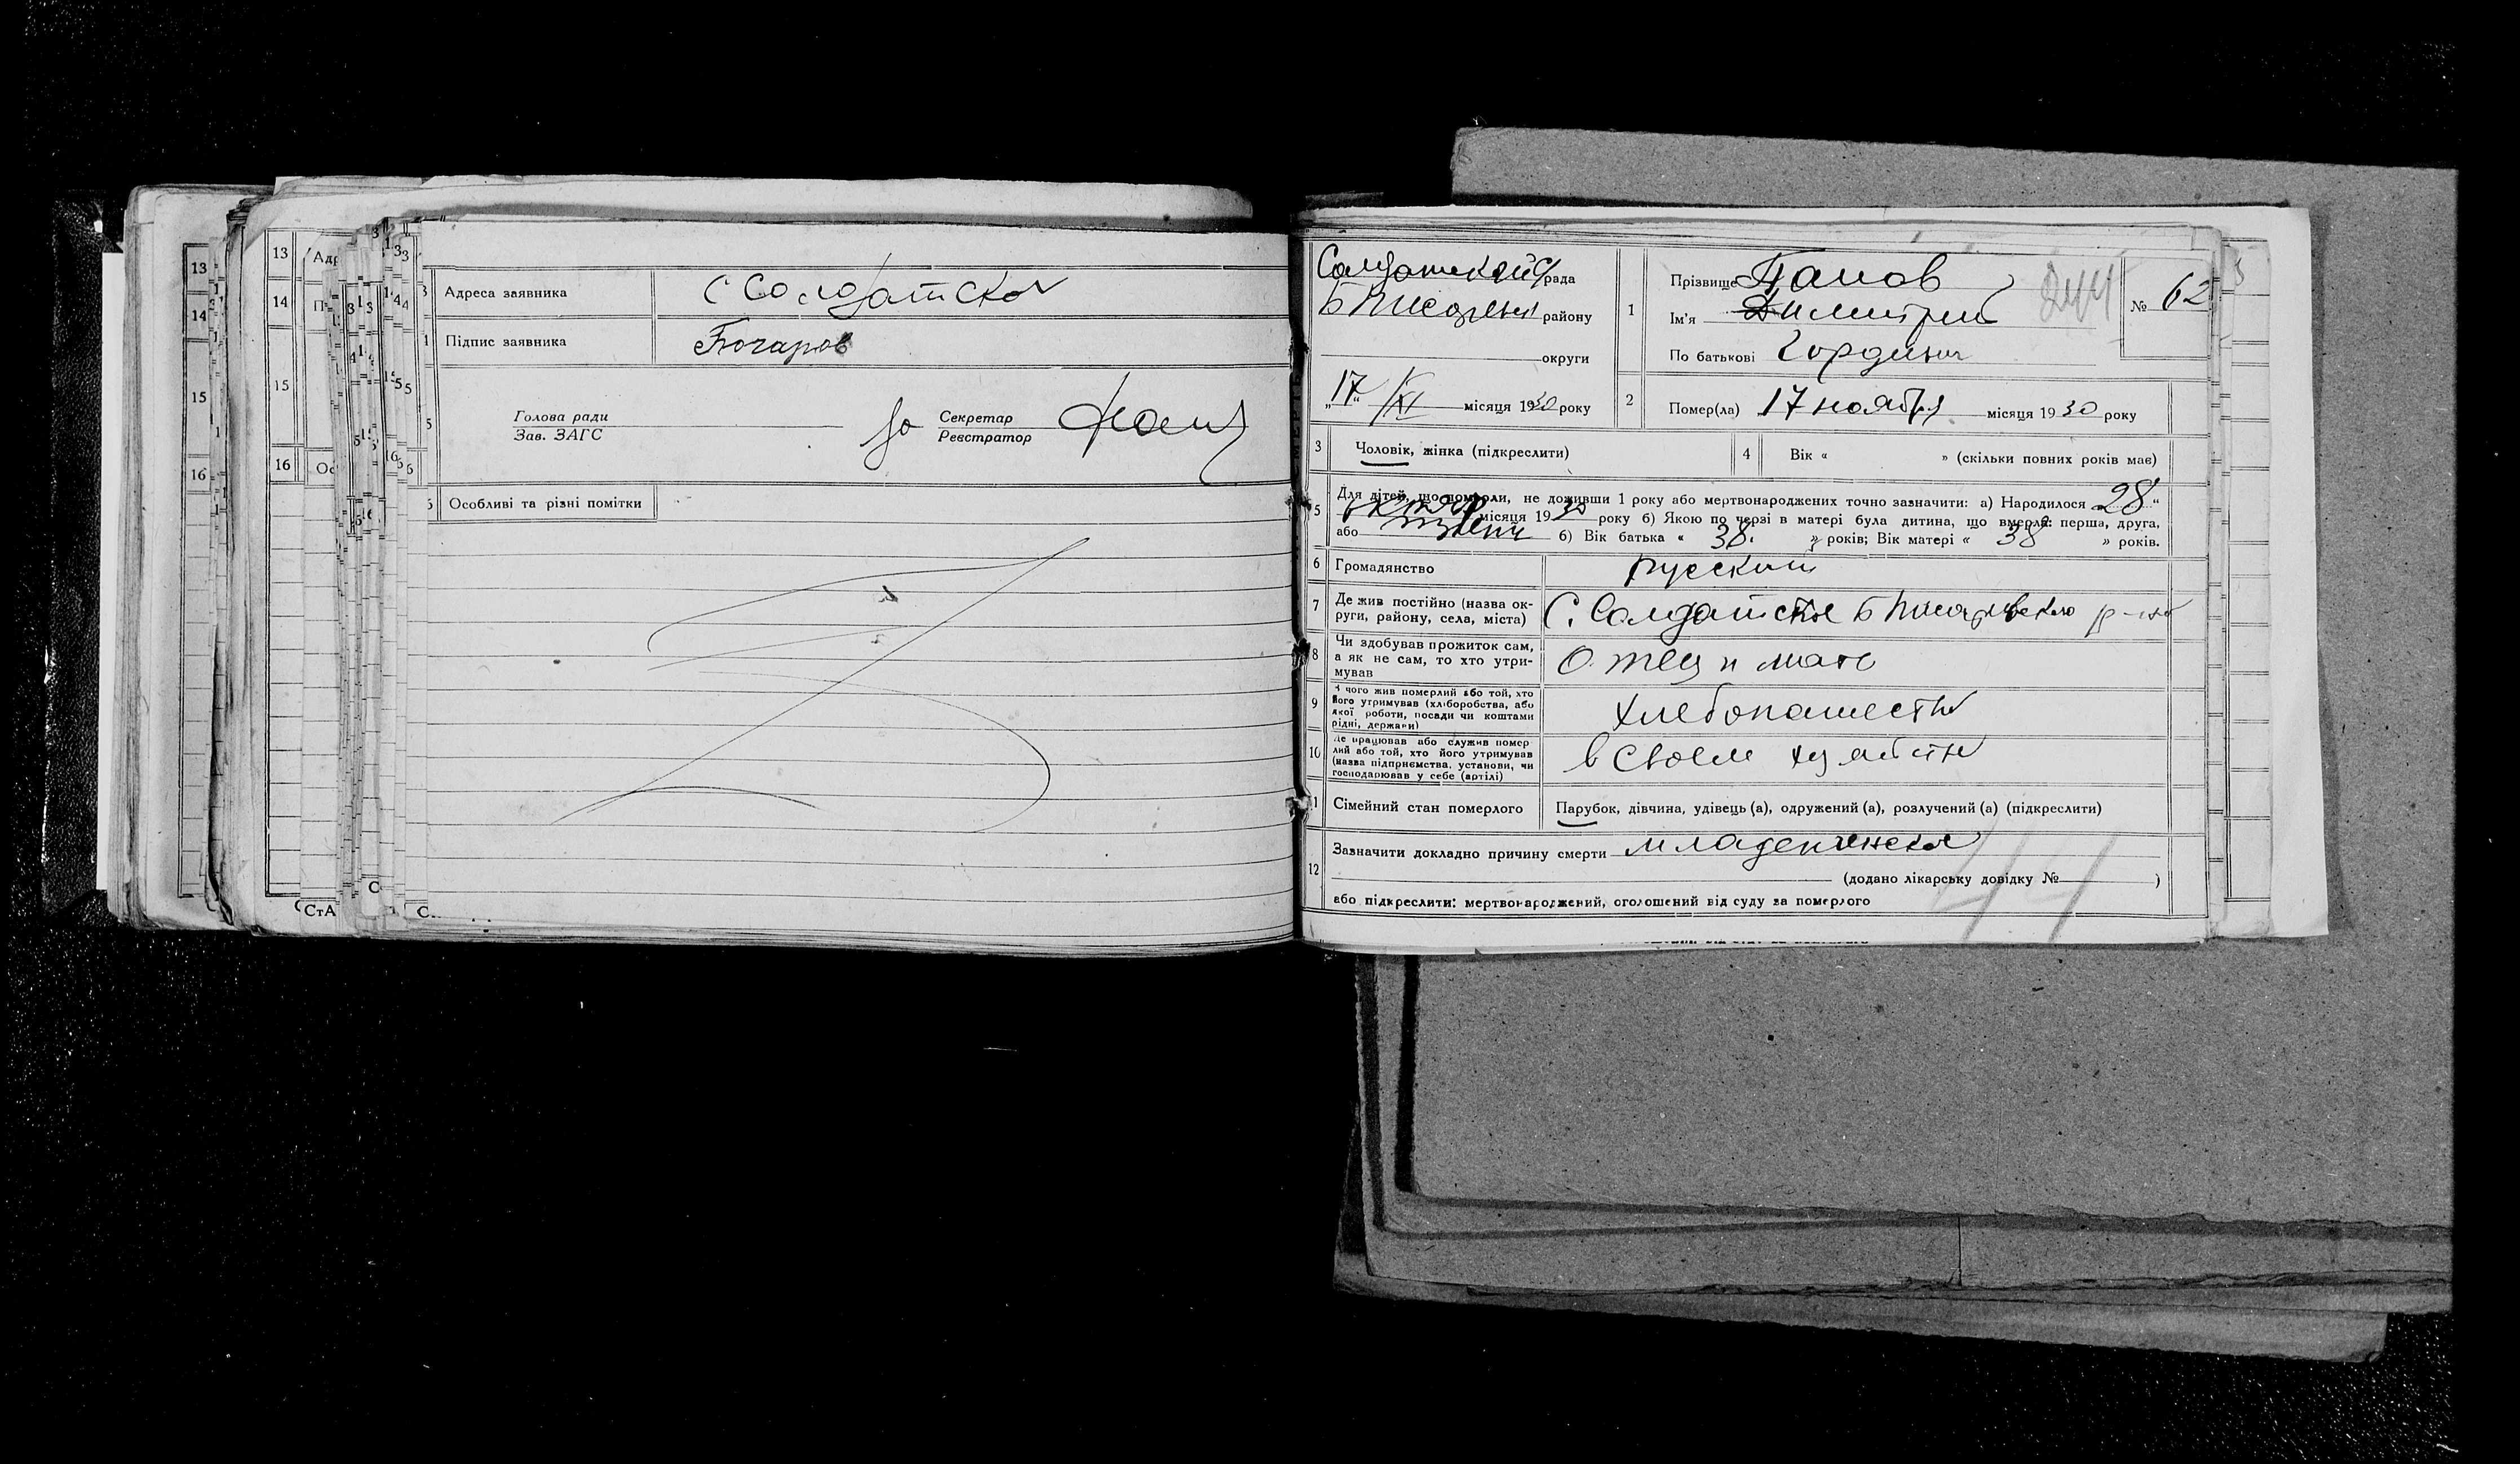 13
14
15
16
13
14
15
16
Адреса заявника
С Солдатское
Підпис заявника
Бочаров
Голова ради
Зав. ЗАГС
Секретар
Реєстратор
Особливі та різні помітки
Солдатской с/рада
Б Писарев району
округи
„17“ XI місяця 1930 року
1
Прізвище
Ім'я Димитрий
По батькові Гордеевич
244
№ 62
2
Помер(ла) 17 ноября місяця 1930 року
3
Чоловік, жінка (підкреслити)
4
Вік « » (скільки повних років має)
5
Для дітей, що померли, не доживши 1 року або мертвонароджених точно зазначити: а) Народилося 28“
октяр місяця 1930 року б) Якою по черзі в матері була дитина, що вмерла: перша, друга,
або б) Вік батька « 38 » років; Вік матері « 38 » років.
6
Громадянство
русский
7
Де жив постійно (назва ок-
руги, району, села, міста)
С. Солдатское Б Писаревского р-на
8
Чи здобував прожиток сам,
а як не сам, то хто утри-
мував
Отец и мать
9
З чого жив померлий або той, хто
його утримував (хліборобства, або
якої роботи, посади чи коштами
рідні, держави)
хлебопашество
10
Де працював або служив помер
лий або той, хто його утримував
(назва підприємства, установи, чи
господарював у себе (артілі)
в своем хозяйстве
11
Сімейний стан померлого
Парубок, дівчина, удівець (а), одружений (а), розлучений (а) (підкреслити)
12
Зазначити докладно причину смерти младенческая
(додано лікарську довідку № )
або підкреслити: мертвонароджений, оголошений від суду за померлого